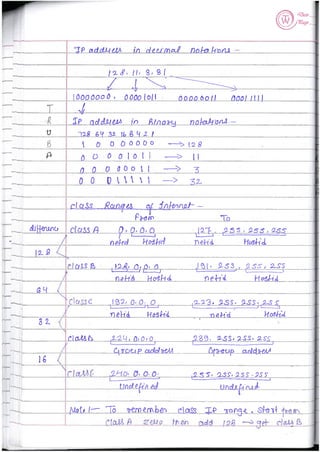 IP address in decimal notations -
128. 11. 3. 31
10000000. 00001011 00000011 00011111
IP address in Binary notations -
128 64 32 16 8 4 2 1
1 0 0 0 0 0 0 0 → 128
0 0 0 0 1 0 1 1 → 11
0 0 0 0 0 0 1 1 → 3
0 0 0 1 1 1 1 1 → 32
class Ranges of Internet -
From To
difference class A 0. 0. 0. 0 127. 255. 255. 255
netid Hostid netid Hostid
128
class B 128. 0. 0. 0 191. 255. 255. 255
netid Hostid netid Hostid
64
class C 192. 0. 0. 0 223. 255. 255. 255
netid Hostid netid Hostid
32
class D 224. 0. 0. 0 239. 255. 255. 255
Group address Group address
16
class E 240. 0. 0. 0 255. 255. 255. 255
Undefined Undefined
Note :- To remember class IP range. Start from
class A zero then add 128 → get class B